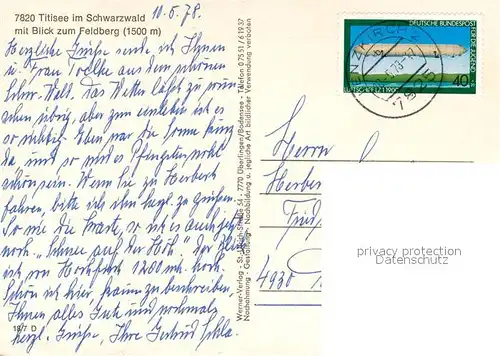 7820 Titisee im Schwarzwald
mit Blick zum Feldberg (1500 m)
10.5.78.
Herzliche Grüße sende ich Ihnen
u. Frau aus dem schönen
Schw. Wald. Das Wetter läßt zu wün-
schen übrig, aber zum einleben ist es
so richtig. Eben war die Sonne kurz
da und so wird es Pfingsten wohl
schön sein. Wenn Sie zu Herbert
fahren, bitte ich ihn herzl. zu grüßen.
So wie die Karte, so ist es auch jetzt
noch. "Schnee auf der Höh".
ist von 1200 m. hoch.
Schön ist hier, kaum zu beschreiben,
Ihnen alles Gute und nochmals
herzl. Grüße, Ihre Gertrud
18/7 D
Werner-Verlag - St.-Ulrich-Straße 54 - 7770 Überlingen/Bodensee - Telefon 07551/61937
Nachahmung - Gestaltung - Nachbildung u. jegliche Art bildlicher Verwendung verboten
DEUTSCHE BUNDESPOST
FÜR DIE JUGEND
40
LENZKIRCH 2
7825
Herrn
Herber
Fried
4930
privacy protection
Datenschutz